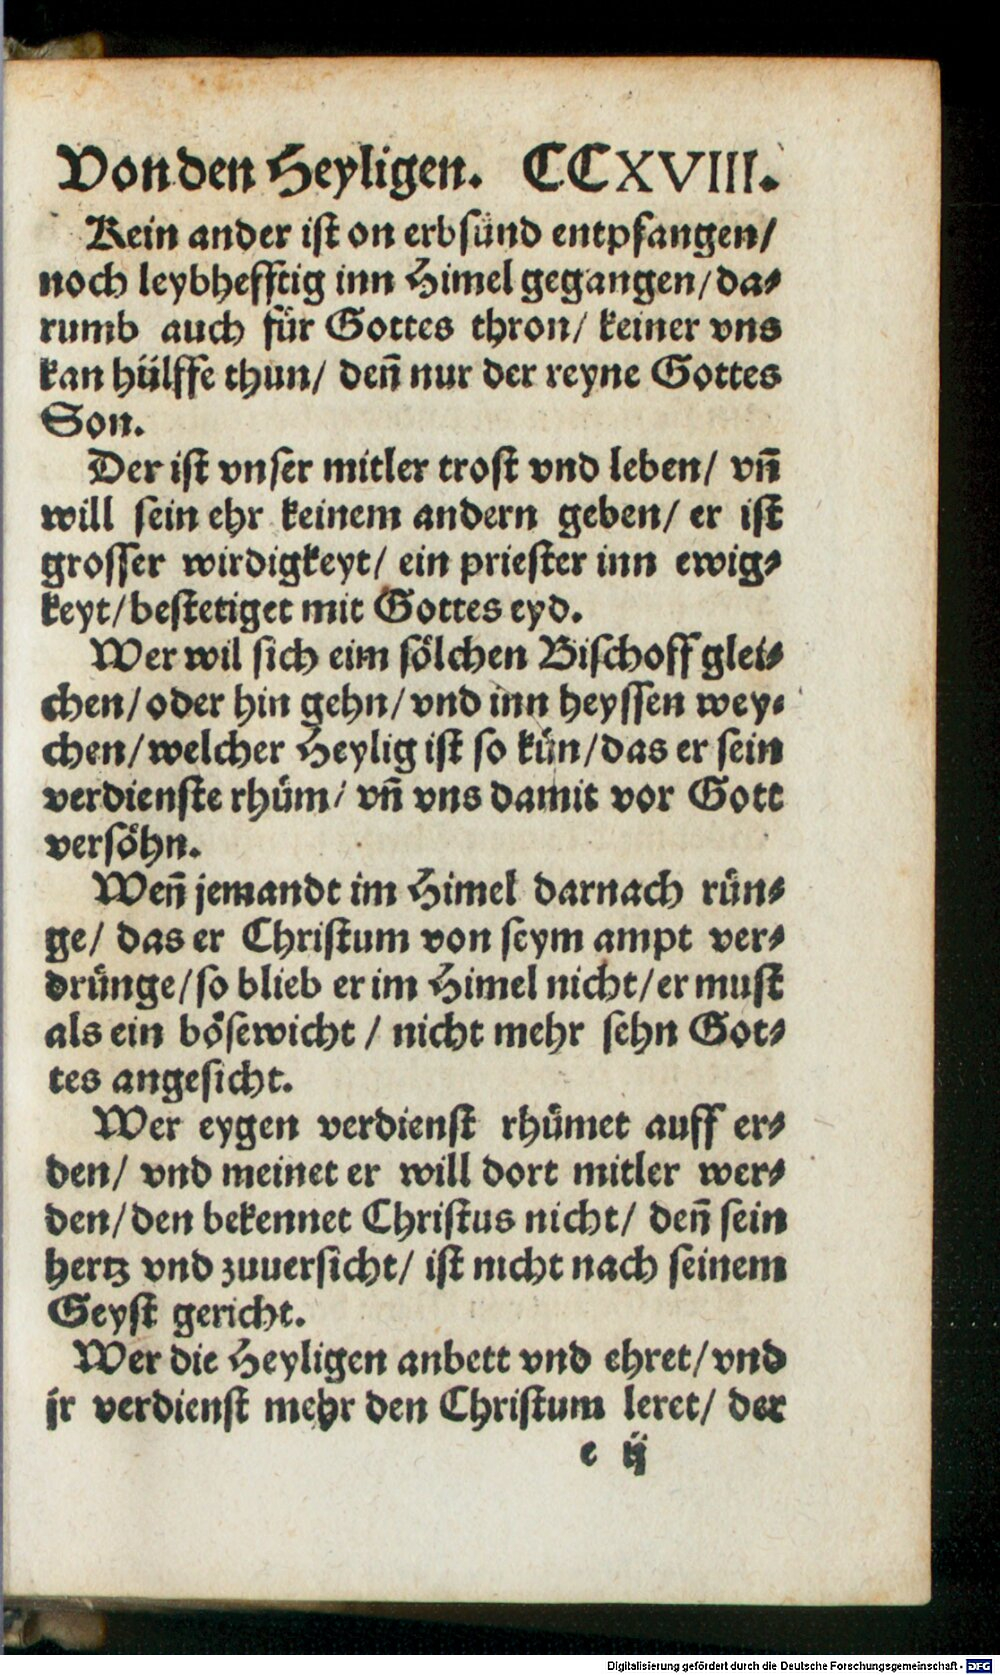 Von den Heyligen. CCXVIII.
Kein ander ist on erbsünd entpfangen/
noch leybhefftig inn Himel gegangen/ da⸗
rumb auch für Gottes thron/ keiner vns
kan hülffe thun/ deñ nur der reyne Gottes
Son.
Der ist vnser mitler trost vnd leben/ vñ
will sein ehr keinem andern geben/ er ist
grosser wirdigkeyt/ ein priester inn ewig⸗
keyt/ bestetiget mit Gottes eyd.
Wer wil sich eim sölchen Bischoff glei⸗
chen/ oder hin gehn/ vnd inn heyssen wey⸗
chen/ welcher Heylig ist so kün/ das er sein
verdienste rhüm/ vñ vns damit vor Gott
versöhn.
Weñ jemandt im Himel darnach rün⸗
ge/ das er Christum von seym ampt ver⸗
drünge/ so blieb er im Himel nicht/ er must
als ein bösewicht/ nicht mehr sehn Got⸗
tes angesicht.
Wer eygen verdienst rhümet auff er⸗
den/ vnd meinet er will dort mitler wer⸗
den/ den bekennet Christus nicht/ deñ sein
hertz vnd zuuersicht/ ist nicht nach seinem
Geyst gericht.
Wer die Heyligen anbett vnd ehret/ vnd
jr verdienst mehr den Christum leret/ der
e ij
Digitalisierung gefördert durch die Deutsche Forschungsgemeinschaft - DFG